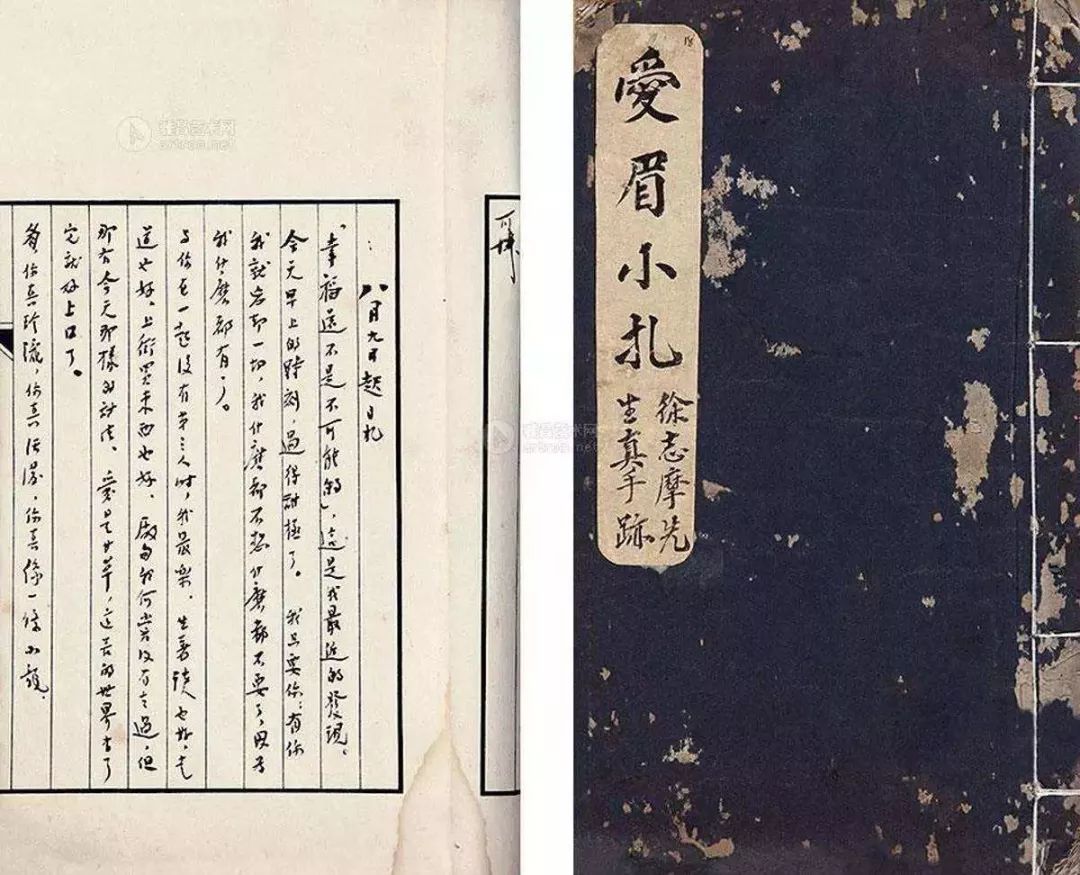 愛眉小札
徐志摩先
生真手跡
八月九日起日札
「幸福還不是不可能的」，這是我最近的發現。
今天早上的時刻，過得甜極了。我只要你；有你
我就忘卻一切，我什麼都不想什麼都不要了，因為
我什麼都有了。
與你在一起沒有第三人時，我最樂。坐著談也好，走
道也好，上街買東西也好。廠甸我何嘗沒有去過，但
那有今天那樣的甜法。愛是甘草，這苦的世界有了
它就好上口了。
眉你真玲瓏，你真活潑，你真像一條小龍。
雅昌艺术网
artron.net
雅昌艺术网
artron.net